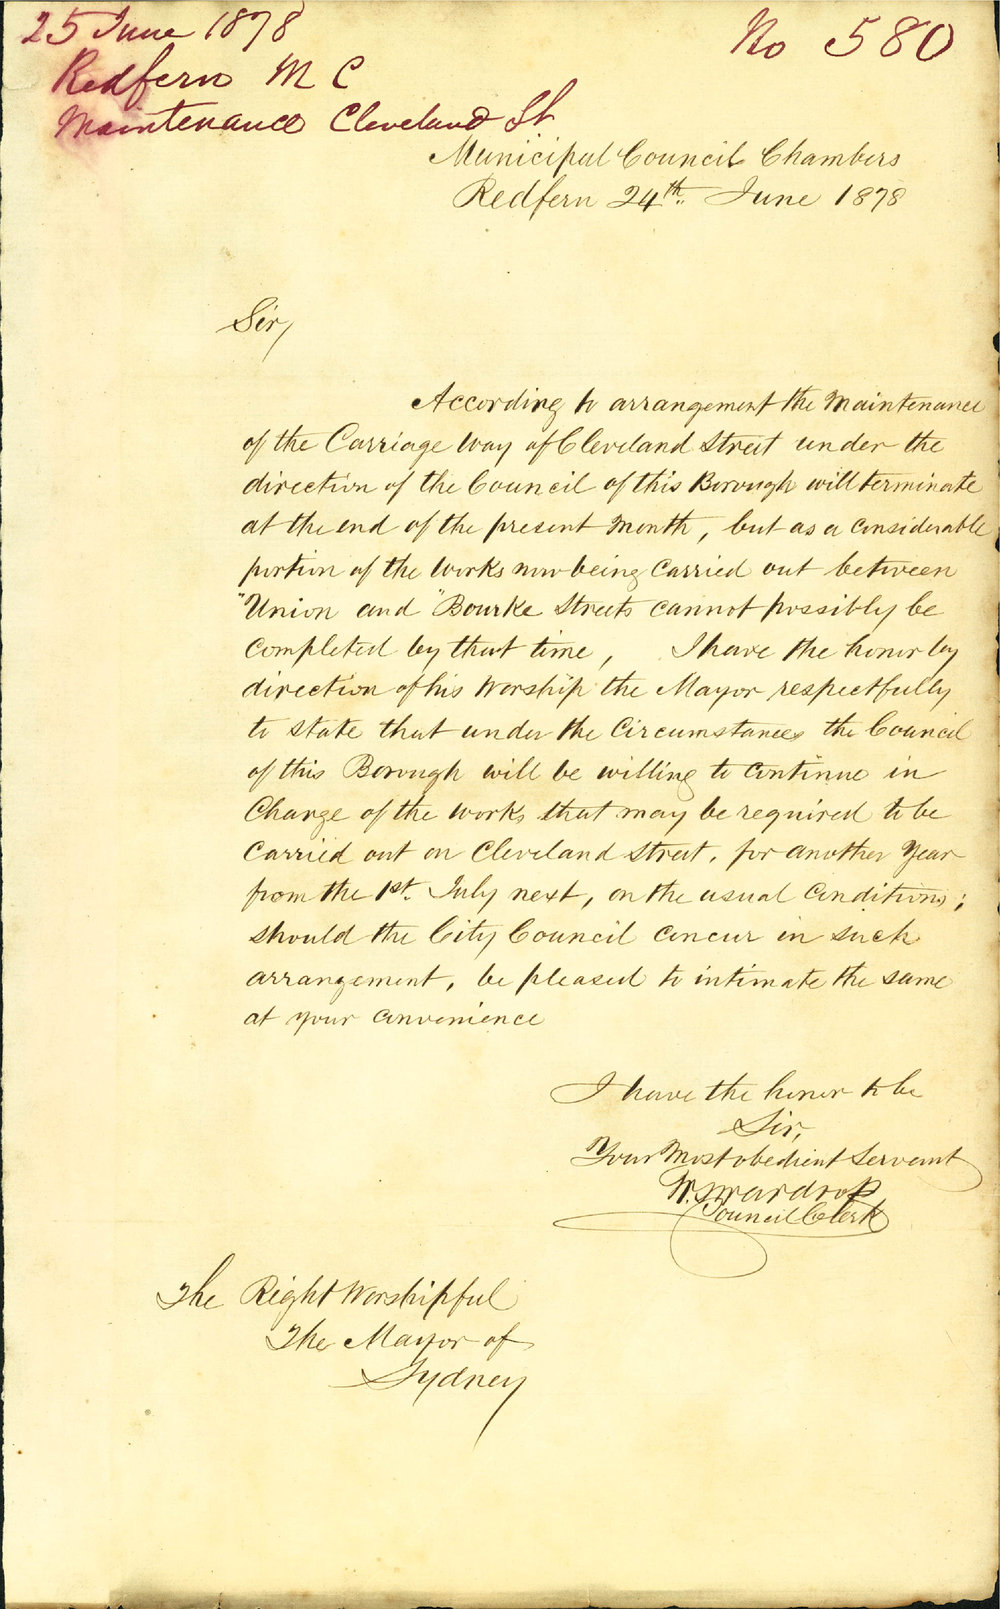 25 June 1878
No 580
Redfern M C
Maintenance Cleveland St
Municipal Council Chambers
Redfern 24th June 1878
Sir,
According to arrangement the Maintenance
of the Carriage Way of Cleveland Street under the
direction of the Council of this Borough will terminate
at the end of the present Month, but as a considerable
portion of the works now being carried out between
"Union and "Bourke Streets cannot possibly be
completed by that time, I have the honor by
direction of his Worship the Mayor respectfully
to state that under the Circumstances the Council
of this Borough will be willing to continue in
Charge of the works that may be required to be
Carried out on Cleveland Street, for another Year
from the 1st. July next, on the usual Conditions;
should the City Council concur in such
arrangement, be pleased to intimate the same
at your convenience
I have the honor to be
Sir,
Your Most obedient Servant
Wardrop
Council Clerk
The Right Worshipful
The Mayor of
Sydney